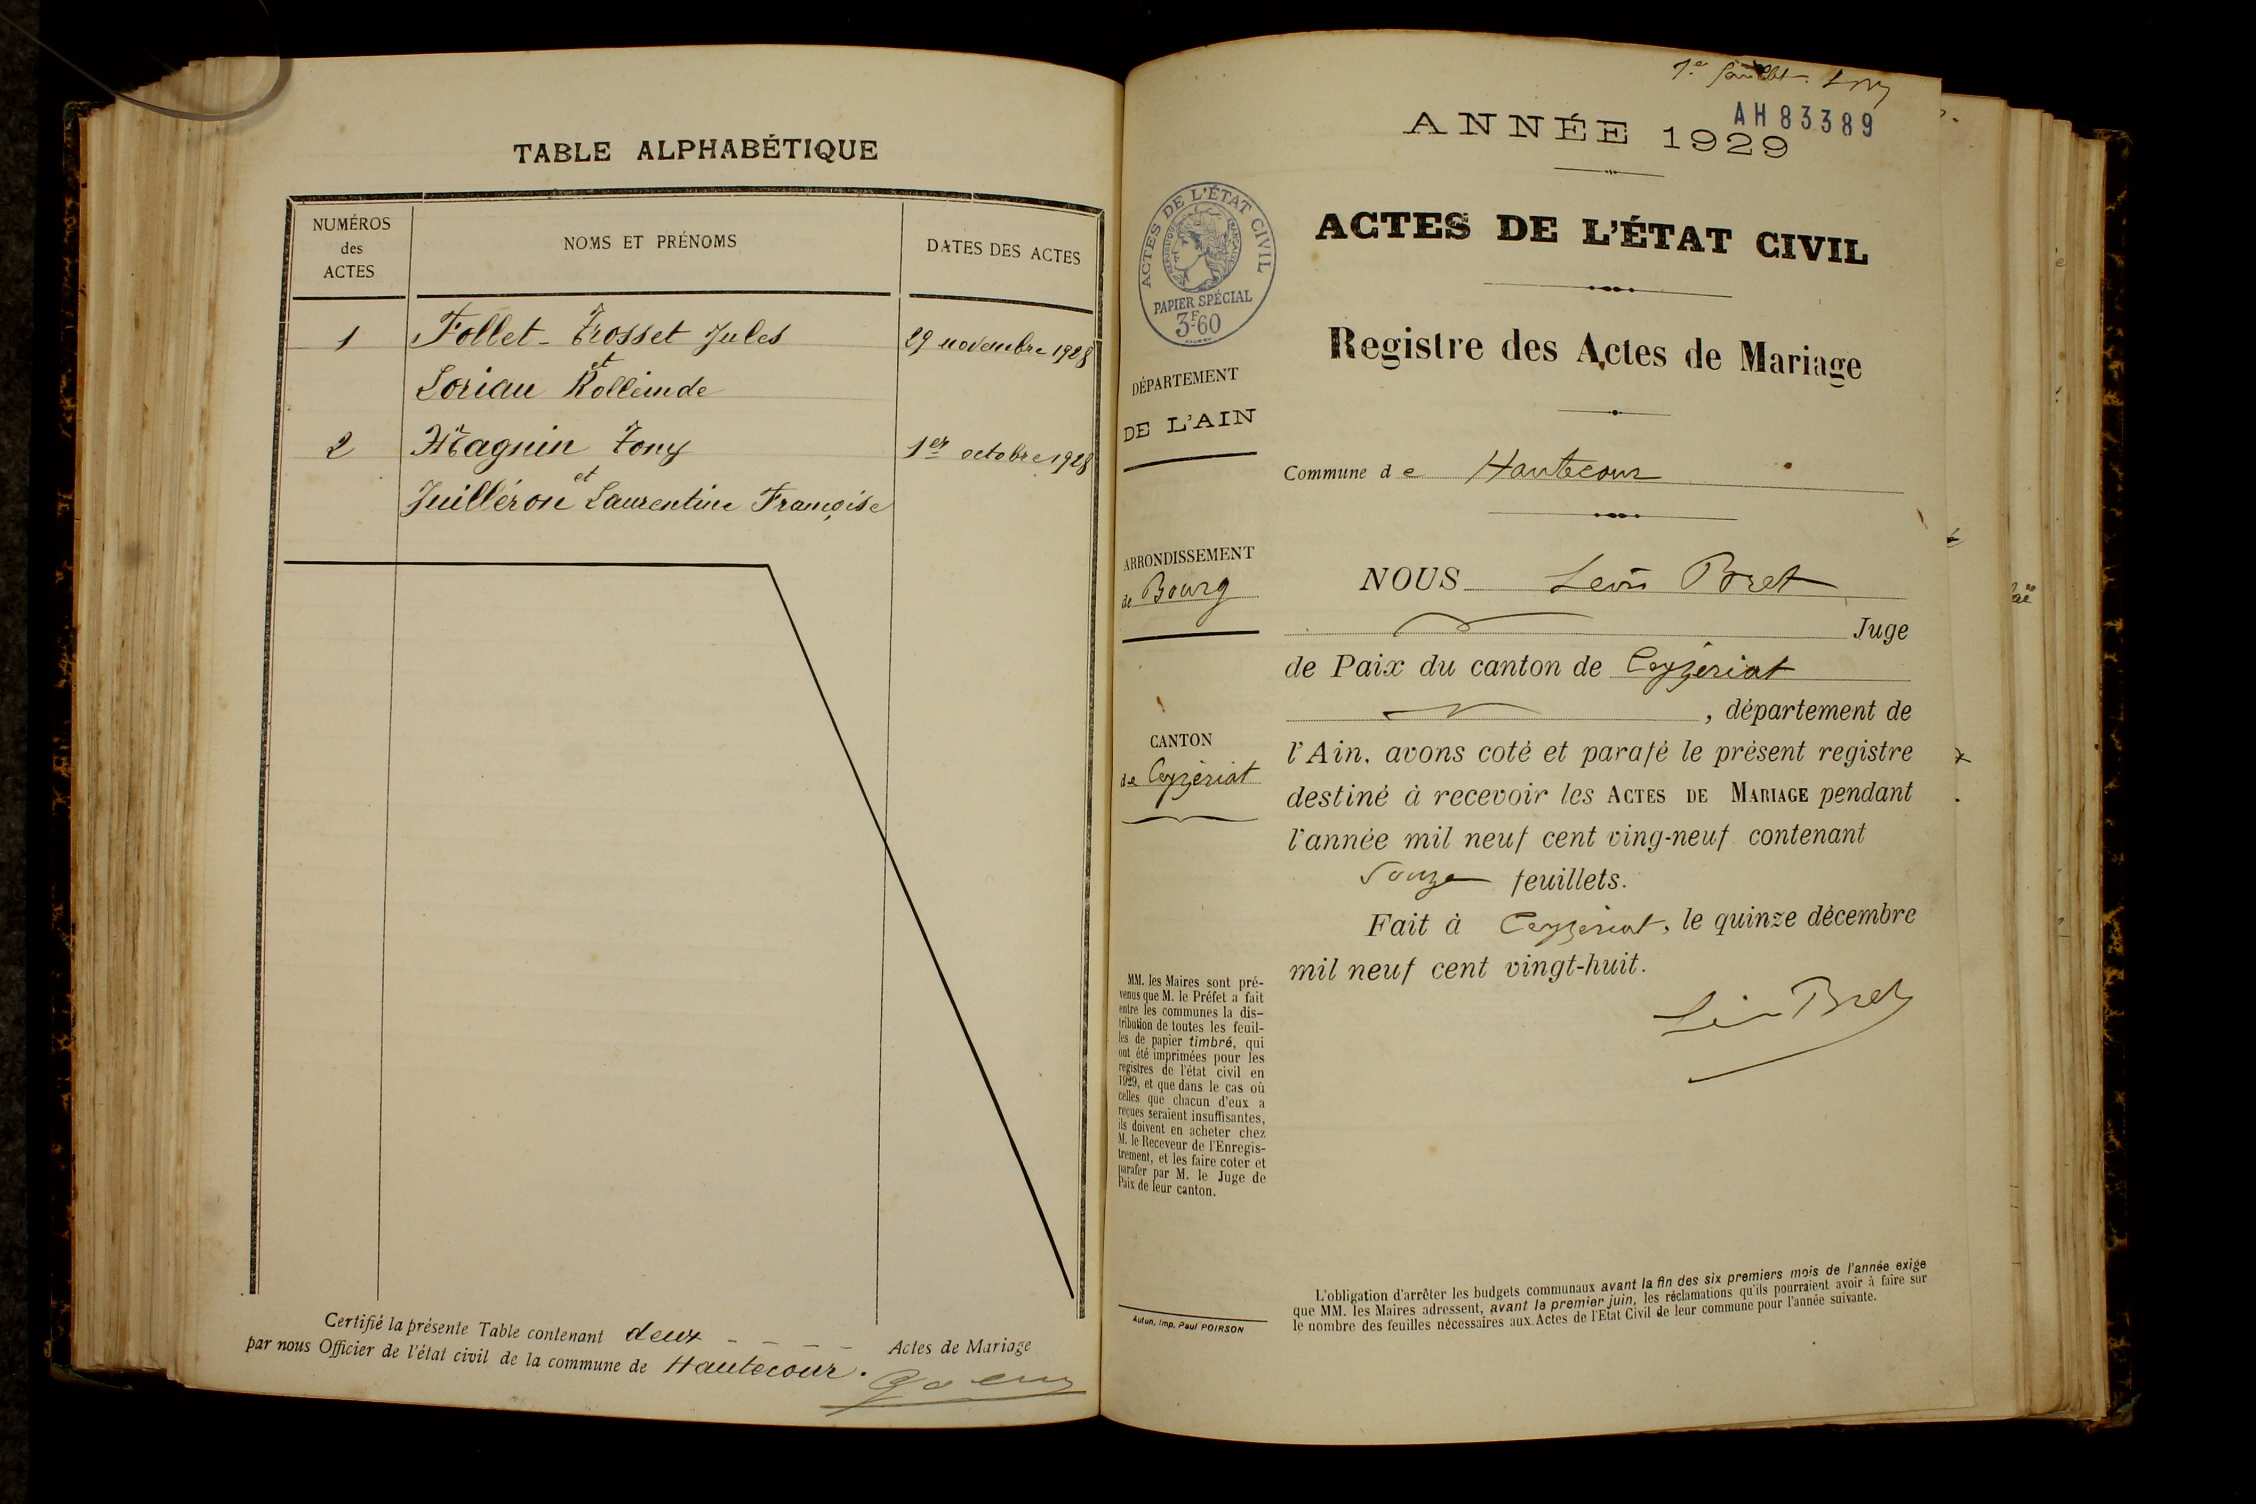 TABLE ALPHABÉTIQUE
NUMÉROS
des
ACTES
NOMS ET PRÉNOMS
DATES DES ACTES
1 Follet-Frosset Jules 29 novembre 1928
et
Loriau
2 Magnin Tony 1er octobre 1928
et
Juilléron Laurentine Françoise
Certifié la présente Table contenant deux Actes de Mariage
par nous Officier de l'état civil de la commune de Hautecour.
AH 83389
ANNÉE 1929
ACTES DE L'ÉTAT CIVIL
PAPIER SPÉCIAL
3F60
ACTES DE L'ÉTAT CIVIL
Registre des Actes de Mariage
DÉPARTEMENT
DE L'AIN
Commune de Hautecour
ARRONDISSEMENT
de Bourg
CANTON
de Ceyzériat
NOUS Léon Bret
Juge
de Paix du canton de Ceyzériat
, département de
l'Ain, avons coté et parafé le présent registre
destiné à recevoir les ACTES DE MARIAGE pendant
l'année mil neuf cent ving-neuf contenant
feuillets.
Fait à Ceyzériat, le quinze décembre
mil neuf cent vingt-huit.
Léon Bret
MM. les Maires sont pré-
venus que M. le Préfet a fait
entre les communes la dis-
tribution de toutes les feuil-
les de papier timbré, qui
ont été imprimées pour les
registres de l'état civil en
1929, et que dans le cas où
celles que chacun d'eux a
reçues seraient insuffisantes,
ils doivent en acheter chez
M. le Receveur de l'Enregis-
trement, et les faire coter et
parafer par M. le Juge de
Paix de leur canton.
Autun, Imp. Paul POIRSON
L'obligation d'arrêter les budgets communaux avant la fin des six premiers mois de l'année exige
que MM. les Maires adressent, avant le premier juin, les réclamations qu'ils pourraient avoir à faire sur
le nombre des feuilles nécessaires aux Actes de l'Etat Civil de leur commune pour l'année suivante.